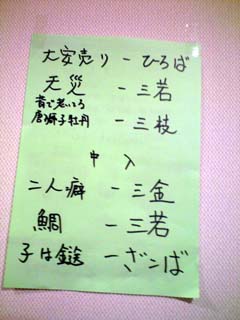 大安売り - ひろば
天災 - 三若
昔で老いろ
唐獅子牡丹 - 三枝
中入
二人癖 - 三金
鯛 - 三若
子は鎹 - ざこば